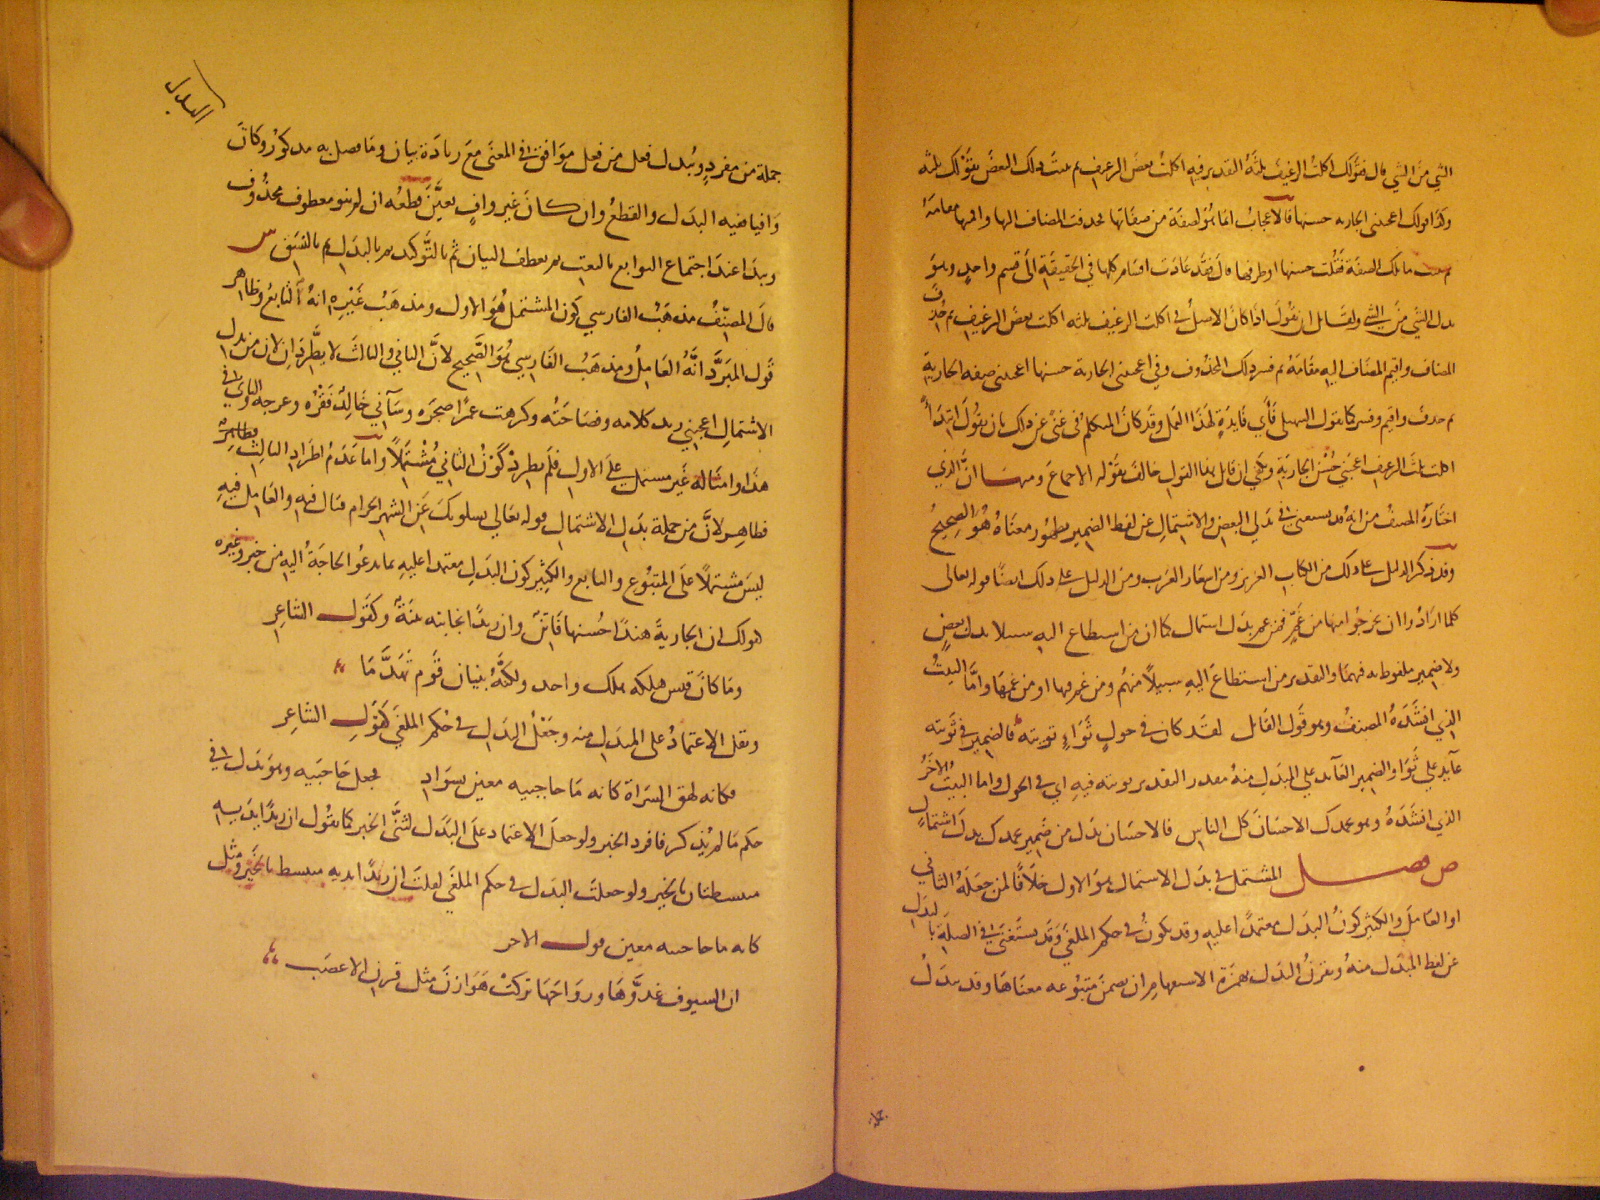 الشي من الشي قال فقولك اكلت الرغيف ثلثه التقدير فيه اكلت بعض الرغيف ثم بينت ذلك البعض بقولك ثلثه
وكذا قولك اعجبتني الجارية حسنها فالاعجاب انما هو لصفة من صفاتها فحذفت المضاف اليها واقمتها مقامه
ثم بينت ما تلك الصفة فقلت حسنها او ظرفها قال فقد عادت اقسامه كلها في الحقيقة الى قسم واحد وهو
بدل الشي من الشي ولقائل ان يقول اذا كان الاصل في اكلت الرغيف ثلثه اكلت بعض الرغيف ثم حذف
المضاف واقيم المضاف اليه مقامه ثم فسر ذلك المحذوف وفي اعجبتني الجارية حسنها اعجبتني صفة الجارية
ثم حذف واقيم وفسر كما يقول السهيلي فأي فايدة لهذا العمل وقد كان المتكلم في غنى عن ذلك بان يقول ابتداً
اكلت ثلث الرغيف اعجبني حسن الجارية ويكفي ان قايل هذا القول خالف بقوله الاجماع ان الذي
اختاره المصنف من انه قد يستغنى في بدلي البعض والاشتمال عن لفظ الضمير بظهور معناه هو الصحيح
وقد ذكر الدليل على ذلك من الكتاب العزيز ومن اشعار العرب ومن الدليل على ذلك ايضًا قوله تعالى
كلما ارادوا ان يخرجوا منها من غمٍّ فمن غم بدل اشتمال كما ان من استطاع اليه سبيلا بدل بعضٍ
ولا ضمير ملفوظ به فيهما والتقدير من استطاع اليه سبيلاً منهم ومن غم فيها او من غمها واما البيت
الذي انشده المصنف وهو قول القايل لقد كان في حول ثواءٍ ثويته فالضمير في ثويته
عايد على ثوا والضمير العايد على المبدل منه مقدر التقدير ثويته فيه اي في الحول واما البيت الاخر
الذي انشده وهو الاحسان كل الناس فالاحسان بدل من ضمير بدل اشتمال
ص فصل المشتمل في بدل الاشتمال هو الاول خلافًا لمن جعله الثاني
او العامل والكثير كون البدل معتمداً عليه وقد يكون في حكم الملغى وقد يستغنى في الصلة بالبدل
عن لفظ المبدل منه ويقرن البدل بهمزة الاستفهام ان تضمن متبوعه معناها وقد تبدل
جملة
البدل
جملة من مفردٍ ويبدل فعل من فعل موافق في المعنى مع زيادة بيان وما فصل به مذكور وكان
وافيا ففيه البدل والقطع وان كان غير وافٍ تعيَّن قطعه ان لم ينو معطوف محذوف
ويبدا عند اجتماع التوابع بالنعت ثم بعطف البيان ثم بالتوكيد ثم بالبدل ثم بالنسق ش
قال المصنف مذهب الفارسي كون المشتمل هو الاول ومذهب غيره انه الثاني وظاهر
قول المبرد انه العامل ومذهب الفارسي هو الصحيح لان الثاني والثالث لا يطردان لان من بدل
الاشتمال اعجبني زيد كلامه وفصاحته وكرهت عمرًا ضجره وسآني خالد فقره وعرجه والثاني في
هذا وامثاله غير مشتمل على الاول فلم يطرد كون الثاني مشتملاً واما عدم اطراد الثالث فظاهر
لان من جملة بدل الاشتمال قوله تعالى يسلونك عن الشهر الحرام قتال فيه والعامل فيه
ليس مشتملاً على المتبوع والتابع والكثير كون البدل معتمدا عليه بما تدعو الحاجة اليه من خبر وغيره
كقولك ان الجارية هندًا حسنها فاتن وان زيدًا نجابته بينةٌ وكقول الشاعر
وما كان قيس هلكه هلك واحد ولكنه بنيان قوم تهدَّما
ويقل الاعتماد على المبدل منه وجعل البدل في حكم الملغى كقول الشاعر
فكانه لهق السراة كانه ما حاجبيه معين بسواد فجعل حاجبيه وهو بدل في
حكم ما لم يذكر فافرد الخبر ولو جعل الاعتماد على البدل لثنى الخبر كما تقول ان زيدًا يديه
منبسطتان بالخير ولو جعلت البدل في حكم الملغى لقلت ان زيدًا يديه منبسط بالخير ومثل
كانه ما حاجبيه معين قول الاخر
ان السيوف غدوَّها ورواحها تركت هوازن مثل قرن الاعضب